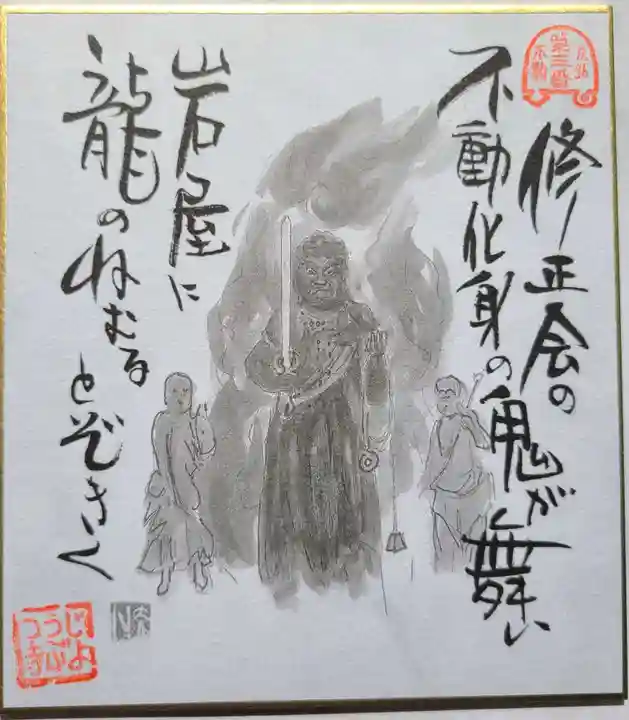 修正会の
不動化身の鬼が舞い
岩屋に
龍のねむる
とぞきく
第三番
じょ
うご
う寺